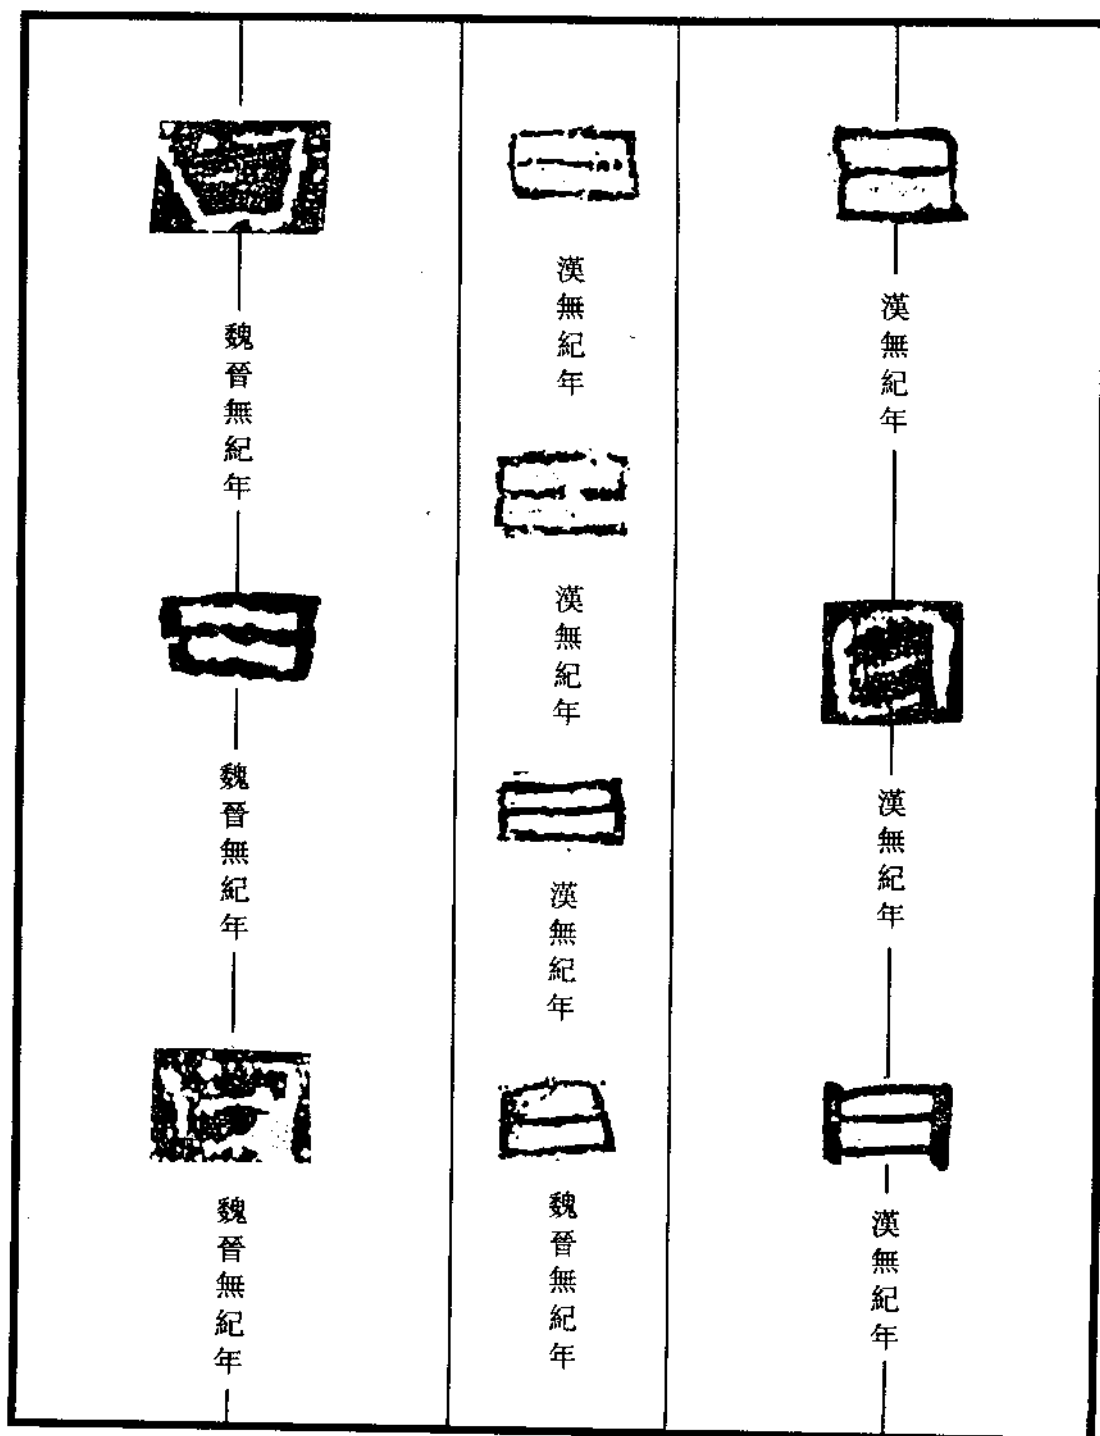 漢無紀年
漢無紀年
漢無紀年
漢無紀年
漢無紀年
漢無紀年
魏晉無紀年
魏晉無紀年
魏晉無紀年
魏晉無紀年